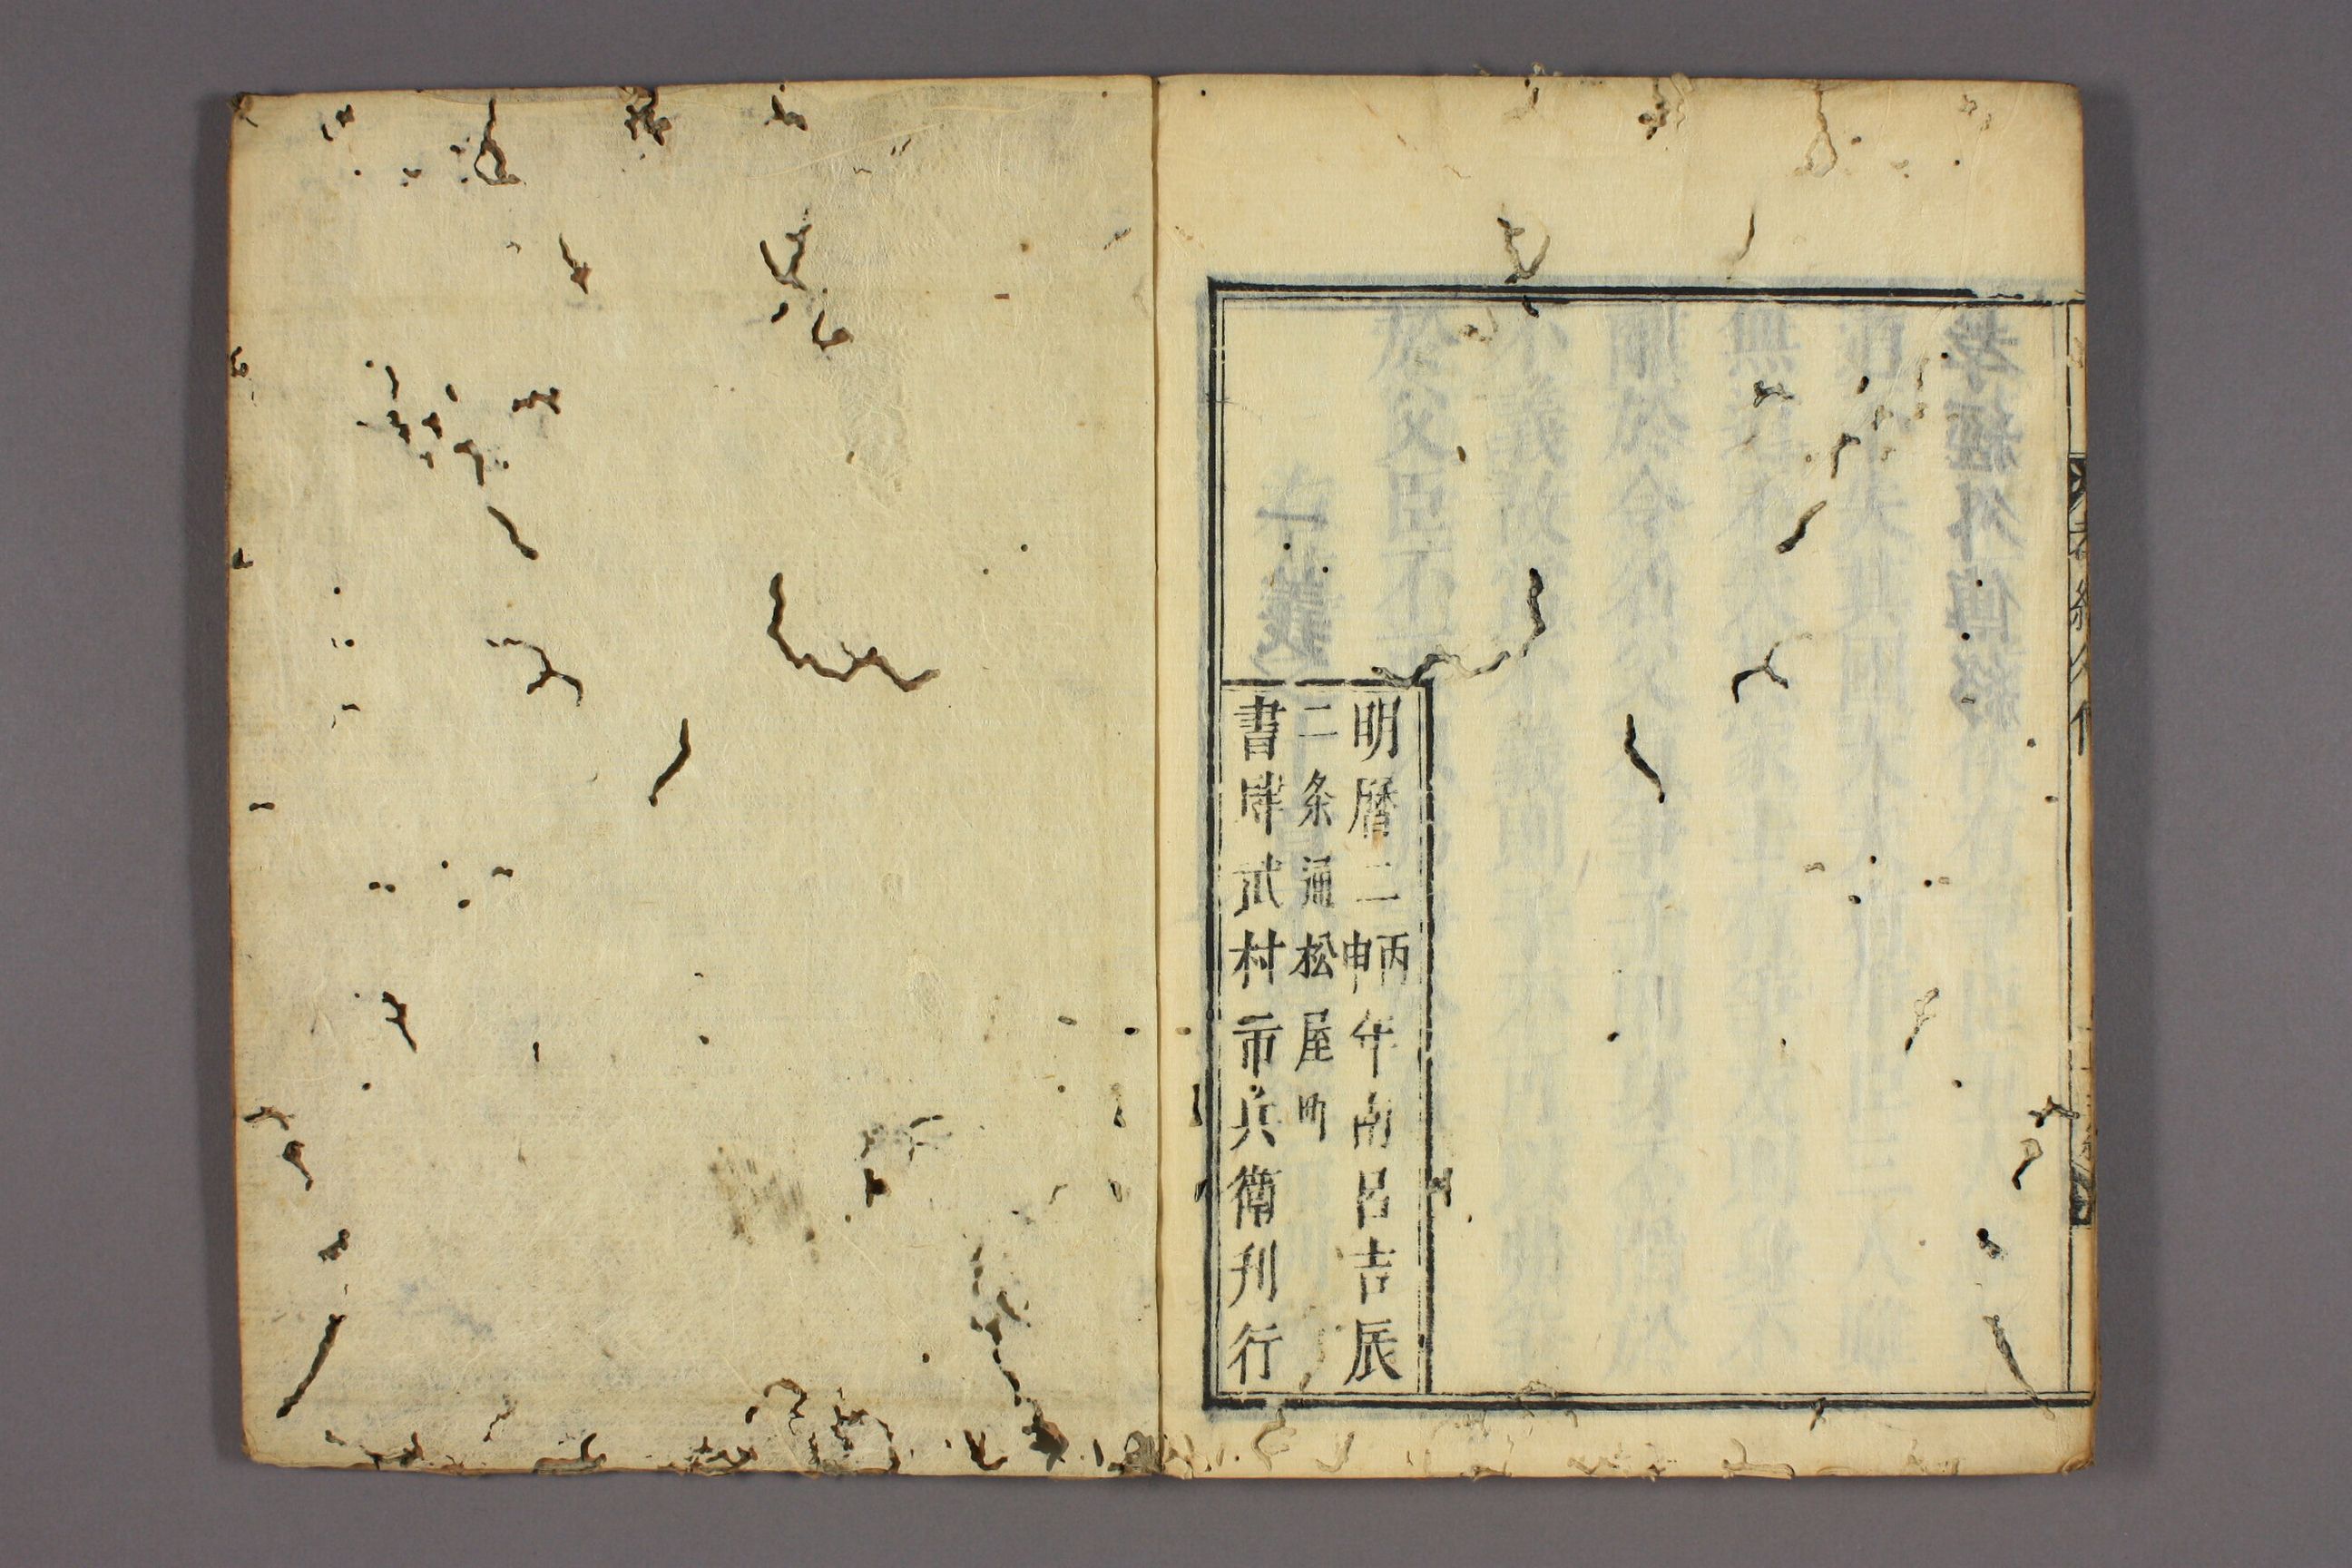 明暦二丙申年南呂吉辰
二条通松屋町
書肆武村市兵衛刊行